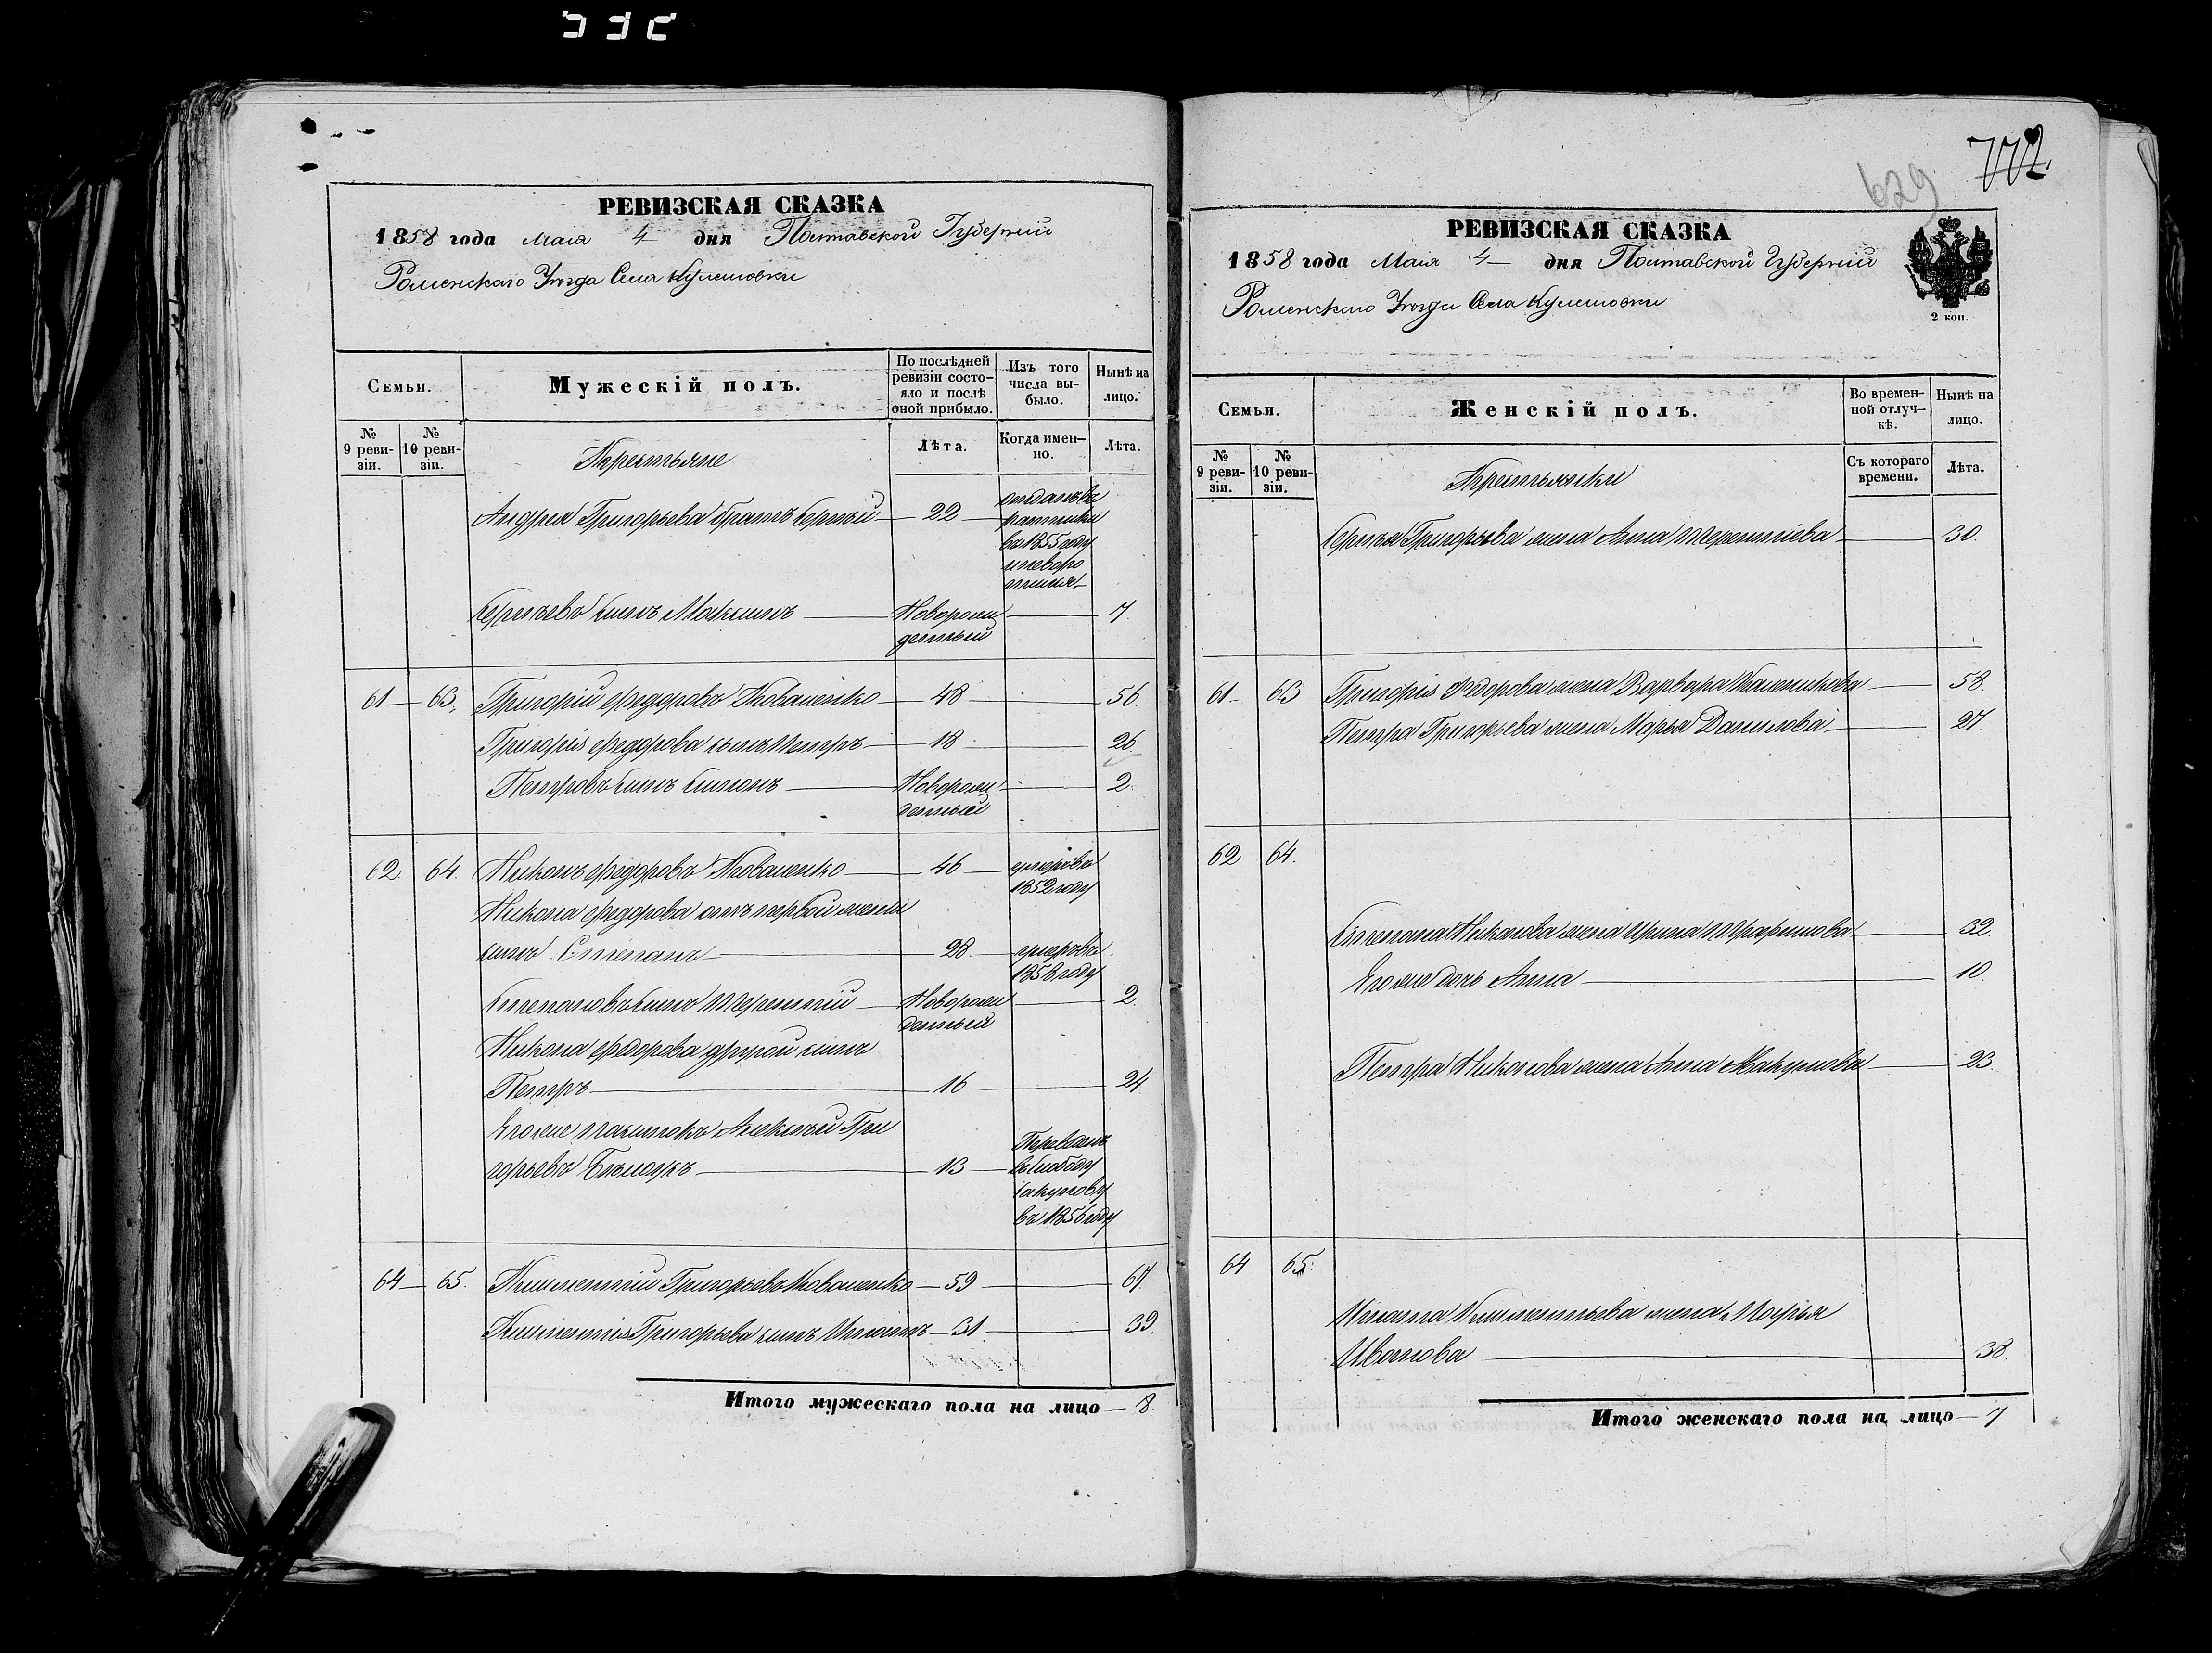 772
629
РЕВИЗСКАЯ СКАЗКА
1858 года Маія 4 дня Полтавской Губерніи
Роменскаго Уѣзда Села Кулешовки
Семьи.
Мужескій полъ.
По послѣдней ревизіи состо-
яло и послѣ оной прибыло.
Изъ того числа вы-
было.
Нынѣ на лицо.
№ 9 реви-
зіи.
№ 10 реви-
зіи.
Крестьяне
Лѣта.
Когда имен-
но.
Лѣта.
Андрея Григорьева братъ Сергѣй — 22 — отданъ въ
въ 1855 году
Сергѣевъ сынъ Максимъ — Новорож
денный — 7.
61 — 63. Григорій Федоровъ Коваленко — 48 — 56.
Григорія Федорова сынъ Петръ — 18 — 26.
Петровъ сынъ Симонъ — Новорож
денный — 2.
62. 64. Никонъ Федоровъ Коваленко — 46 — умеръ въ
1852 году
Никона Федорова отъ первой жены
сынъ Степанъ — 28. — умеръ въ
1858 году
Степановъ сынъ Терентій — Новорож
денный — 2.
Никона Федорова другой сынъ
Петръ — 16 — 24.
Его же Алексѣй Гри
горьевъ — 13 —
въ слободу
въ 1856 году
64 — 65. Климентій Григорьевъ Коваленко — 59 — 67.
Климентія Григорьева сынъ Игнатъ — 31. — 39.
Итого мужескаго пола на лицо — 8.
РЕВИЗСКАЯ СКАЗКА
1858 года Маія 4 дня Полтавской Губерніи
Роменскаго Уѣзда Села Кулешовки
2 коп.
Семьи.
Женскій полъ.
Во времен-
ной отлуч-
кѣ.
Нынѣ на лицо.
№ 9 реви-
зіи.
№ 10 реви-
зіи.
Крестьянки
Съ котораго времени.
Лѣта.
Сергѣя Григорьева жена Анна Терентіева — 30.
61. 63 Григорія Федорова жена Варвара — 58.
Петра Григорьева жена Марья Данилова — 27.
62 64.
Степана Никонова жена Ирина — 32.
Его же дочь Анна — 10.
Петра Никонова жена Анна — 23.
64 65.
Игната Климентьева жена Марья
Иванова — 38.
Итого женскаго пола на лицо — 7